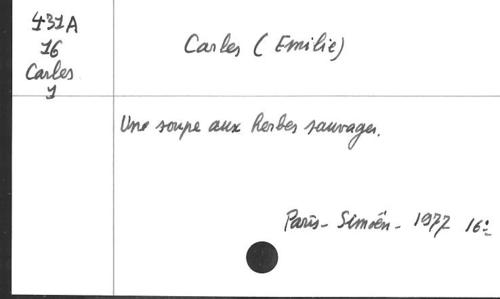 431A
16
Carles
1
Carles (Emilie)
Une soupe aux herbes sauvages.
Paris - Simoën - 1977 16°